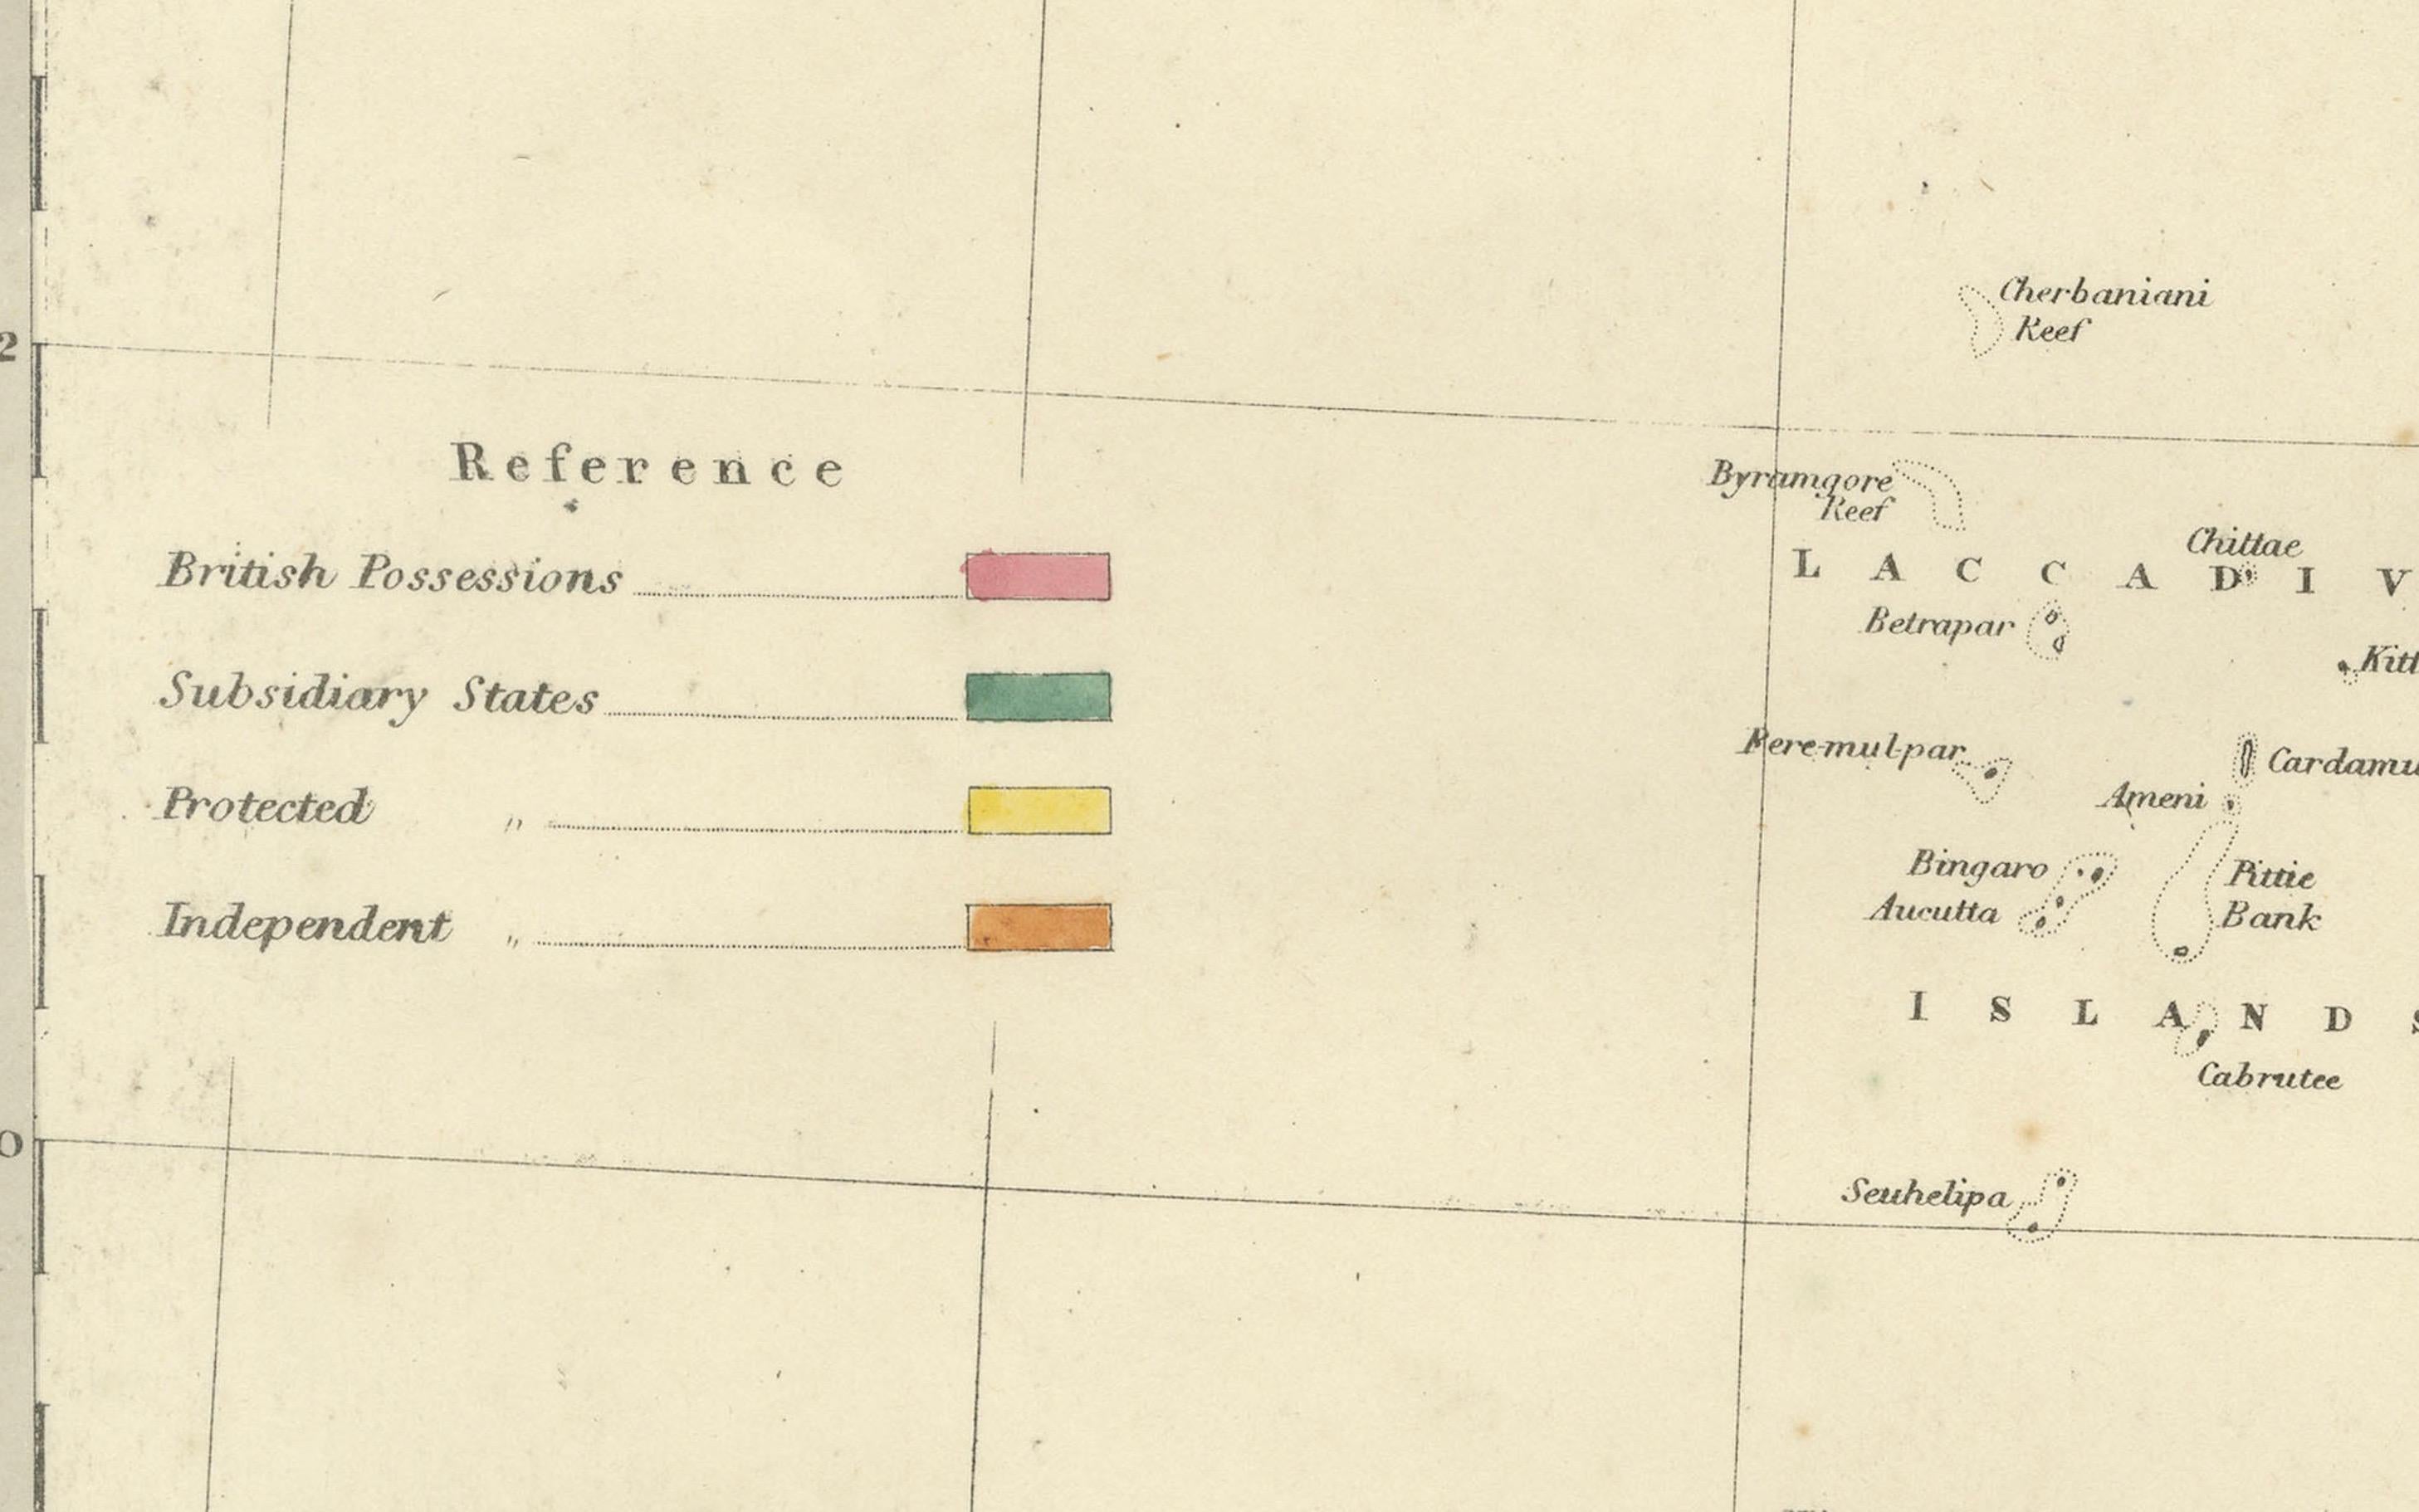 Cherbaniani
Reef
2
Reference
British Possessions
Subsidiary States
Protected "
Independent "
Byramgore
Reef
Chittae
LACCADIV
Betrapar
Kitt
Peremulpar
Cardamu
Ameni
Bingaro
Aucutta
Pittie
Bank
ISLANDS
Cabrutee
0
Seuhelipa